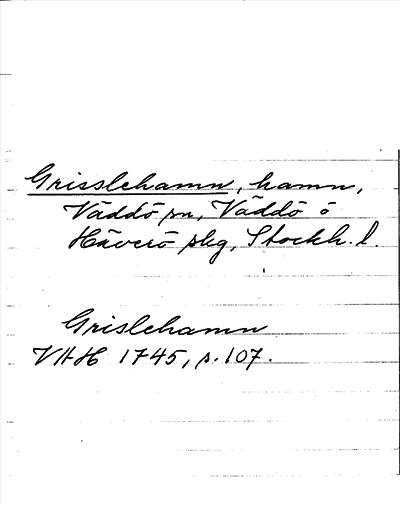 Grisslehamn, hamn,
Väddö sn, Väddö o
Häverö skg, Stockh. l.
Grislehamn
VAH 1745, s. 107.